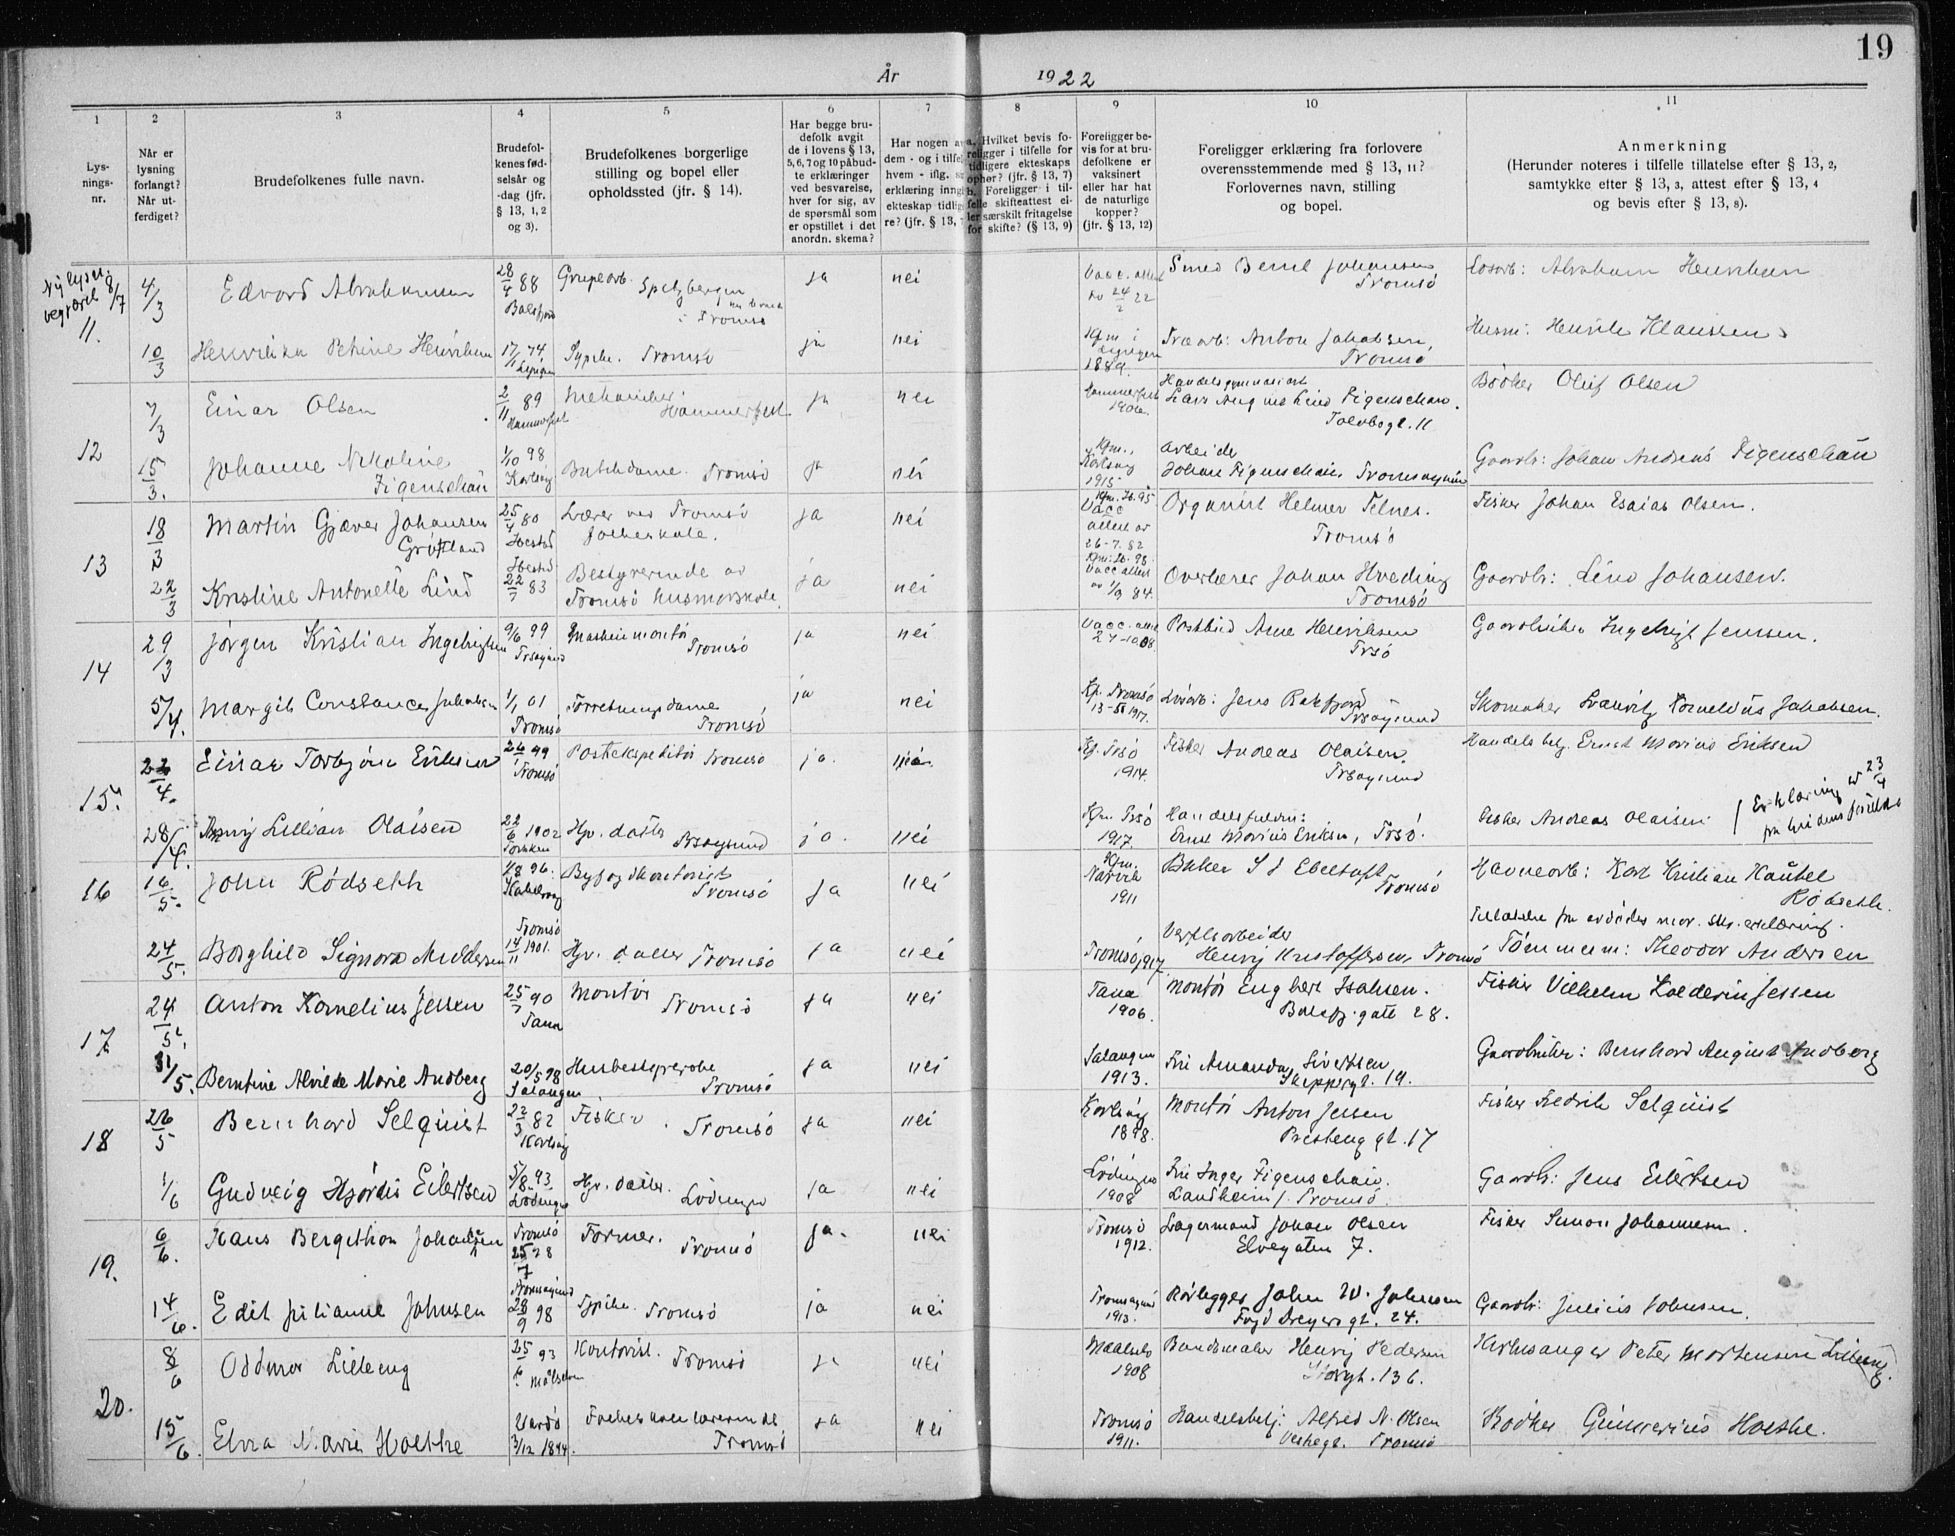 19
År 1922
1 2 3 4 5 6 7 8 9 10 11
Lys-
nings-
nr.
Når er
lysning
forlangt?
Når ut-
ferdiget?
Brudefolkenes fulle navn.
Brudefol-
kenes fød-
selsår og
-dag (jfr.
§ 13, 1, 2
og 3).
Brudefolkenes borgerlige
stilling og bopel eller
opholdssted (jfr. § 14).
Har begge bru-
defolk avgit
de i lovens § 13,
5, 6, 7 og 10 påbud-
te erklæringer
ved besvarelse,
hver for sig, av
de spørsmål som
er opstillet i det
anordn. skema?
Har nogen av
dem - og i tilfel
hvem - iflg.
erklæring inng
ekteskap tidlig
re? (jfr. § 13,
a. Hvilket bevis fo-
religger i tilfelle for
tidligere ekteskaps
ophør? (jfr. § 13, 7)
b. Foreligger i til-
felle skifteattest el-
ler særskilt fritagelse
for skifte? (§ 13, 9)
Foreligger be-
vis for at bru-
defolkene er
vaksinert
eller har hat
de naturlige
kopper?
(jfr. § 13, 12)
Foreligger erklæring fra forlovere
overensstemmende med § 13, 11?
Forlovernes navn, stilling
og bopel.
Anmerkning
(Herunder noteres i tilfelle tillatelse efter § 13, 2,
samtykke efter § 13, 3, attest efter § 13, 4
og bevis efter § 13, 8).
11. 4/3 Edvard Abrahamsen 28/4 88 Balsfjord Grubearb. Spitzbergen
i Tromsø ja nei Vacc. attest av 24/2 22 Smed Bernt Johansen Tromsø Løsarb: Abraham Henriksen
10/3 Henrikka Petrine Henriksen 17/1 74 Lyngen Sypike. Tromsø ja nei Kfm i Lyngen 1889. Træarb: Anton Jakobsen, Tromsø Husm: Henrik Klaussen
12 7/3 Einar Olsen 2/11 89 Hammerfest Mekaniker Hammerfest ja nei Hammerfest 1906. Handelsgymnasiast
Lars Figenschau. Tolbodgt. 11 Bødker Oluf Olsen
15/3. Johanne Nikoline Figenschau 1/10 98 Karlsøy Butikdame. Tromsø ja nei Kfm. Karlsøy 1915 Arbeider
Johan Figenschau, Tromsøysund Gaardbr: Johan Andreas Figenschau
13 18/3 Martin Gjæver Johansen Grøtland 25/4 80 Ibestad Lærer ved Tromsø folkeskole. ja nei Kfm. Ib. 95. Vacc attest av 26-7. 82 Organist Helmer Telnes. Tromsø Fisker Johan Esaias Olsen.
22/3 Kristine Antonette Lind Ibestad 22/7 83 Bestyrerinde av Tromsø husmorskole. ja nei Kfm: Ib. 98. Vacc attest av 1/9 84. Overlærer Johan Hveding Tromsø Gaardbr: Lind Johansen.
14 29/3 Jørgen Kristian Ingebrigtsen 9/6 99 Trsøysund Maskinmontør Tromsø ja nei Vacc. attest 27-10.08. Postbud Arne Henriksen Trsø Gaardbruker Ingebrigt Jenssen.
5/4. Margit Constance Jakobsen 1/1 01 Tromsø Forretningsdame Tromsø ja nei Kf. Tromsø 13-XI 1917. Løsarb: Jens Rakfjord Trsøysund Skomaker Lauritz Kornelius Jakobsen.
15. 22/4. Einar Torbjørn Eriksen 26/1 99 Tromsø Postekspeditør Tromsø ja. nei. Kf. Trsø 1914. Fisker Andreas Olaisen. Trsøysund Handelsbetj. Ernst Marius Eriksen
28/4. Anny Lillian Olaisen 22/6 1902 Torsken Hjv. datter Trsøysund ja. nei Kfm. Trsø 1917. Handelsfuldm:
Ernst Marius Eriksen, Trsø. Fisker Andreas Olaisen (Erklæring av 23/4 fra brudens forældre
16 16/5. John Rødseth 4/8 96. Byfogdkontorist Tromsø ja nei Kfm. Narvik 1911 Baker S J Ebeltoft Tromsø Havnearb: Karl Kristian Rødseth.
24/5. Borghild Signora Andersen Tromsø 14/11 1901. Hjv. datter Tromsø ja nei Tromsø 1917 Verftsarbeider
Henry Kristoffersen, Tromsø Tillatelse fra avdødes mor. skr. erklæring.
Tømmerm: Theodor Andersen
17 24/5. Anton Kornelius Jessen 25/7 90 Tana Montør Tromsø ja nei Tana 1906. Montør Engbert Isaksen. Balsfj.gate 28. Fisker Vilhelm Jessen
31/5. Berntine Alvilde Marie Andberg 20/5 98 Salangen Husbestyrerske Tromsø ja nei Salangen 1913. Frk Amanda Sivertsen Skippergt. 19. Gaardbruker: Bernhard August Andberg
18 26/5 Bernhard Selquist 22/3 82 Karlsøy Fisker. Tromsø ja nei Karlsøy 1898. Montør Anton Jessen Prestenggt. 17 Fisker Fredrik Selquist
1/6 Gudveig Hjørdis Eilertsen 5/8. 93 Lødingen Hjv. datter. Lødingen ja nei Lødingen 1908 Frk Inger Figenschau. Tromsø. Gaardbr: Jens Eilertsen
19. 6/6. Hans Bergithon Johansen Tromsø 25/7 98 Former. Tromsø ja. nei Tromsø 1912. Lagermand Johan Olsen Elvegaten 7. Fisker Simon Johannesen.
14/6. Edit Julianne Johnsen Tromsøysund 28/9 98 Sypike. Tromsø ja nei Tromsøysund 1913. Rørlegger John W. Johnsen Fogd Dreyersgt. 24. Gaardbr: Julius Johnsen.
20. 8/6 Oddmar Lilleeng 25/6. 93 Målselven Kontorist. Tromsø ja nei Maalselv 1908 Bundsmaker Henry Pedersen Storgt. 136. Kirkesanger Peter Mortensen Lilleeng.
15/6. Elna Marie Holthe Vardø 3/12 1894. Folkeskolelærerinde Tromsø ja nei Tromsø 1911. Handelsbetj: Alfred N. Olsen Vestegt. Tromsø Bødker Gunnerius Holthe.